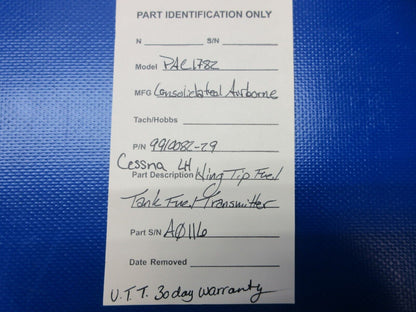 PART IDENTIFICATION ONLY
N ________ S/N ________
Model PAC1782
MFG Consolidated Airborne
Tach/Hobbs
P/N 9910082-29
Cessna LH
Part Description Wing Tip Fuel
Tank Fuel Transmitter
Part S/N AØ116
Date Removed
U.T.T. 30 day warranty